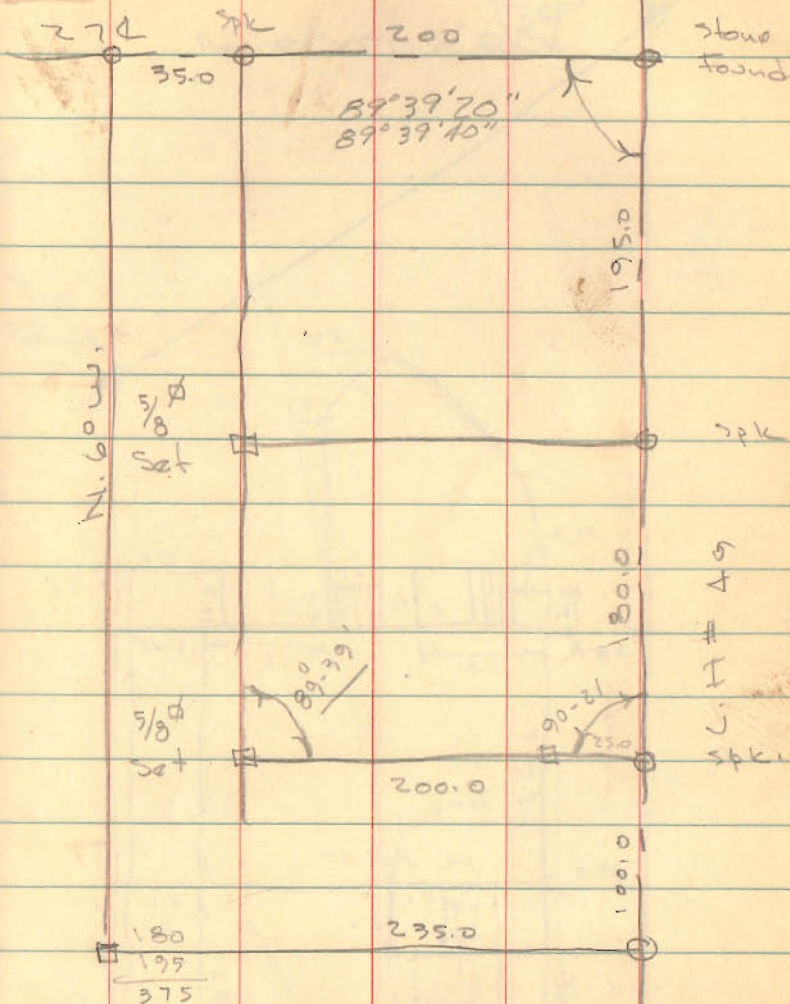 27 ℄
spk
200
stone
found
35.0
89°39'20"
89°39'40"
195.0
N. 6° W.
5/8 ⌀
Set
spk
180.0
89°-39'
90-21
25.0
5/8 ⌀
Set
spk.
200.0
100.0
180
195
375
235.0